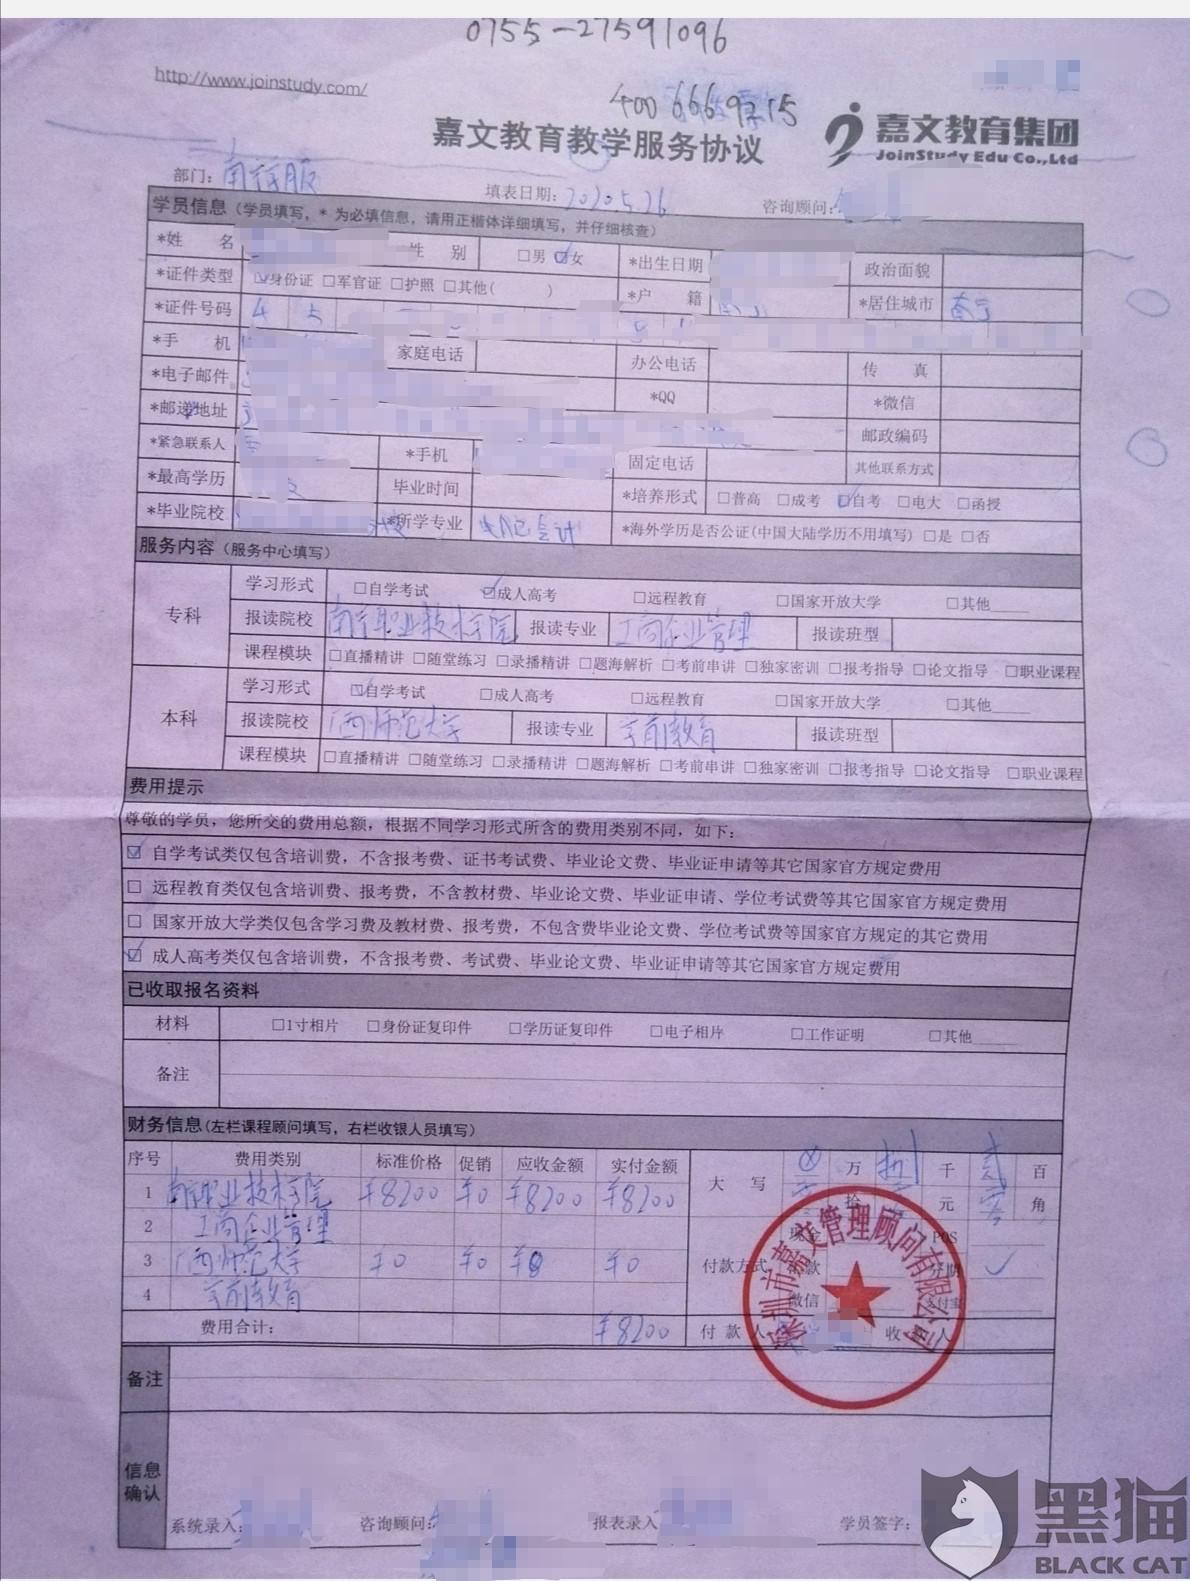 0755-27591096
http://www.joinstudy.com/
400 6669215
嘉文教育教学服务协议
嘉文教育集团
JoinStudy Edu Co.,Ltd
部门: 南宁客服 填表日期: 2020.5.26 咨询顾问:
学员信息(学员填写,*为必填信息,请用正楷体详细填写,并仔细核查)
*姓 名 性 别 □男 ☑女 *出生日期 政治面貌
*证件类型 ☑身份证 □军官证 □护照 □其他( ) *户 籍 *居住城市 南宁
*证件号码 4 5
*手 机 家庭电话 办公电话 传 真
*电子邮件 *QQ *微信
*邮递地址 邮政编码
*紧急联系人 *手机 固定电话 其他联系方式
*最高学历 毕业时间 *培养形式 □普高 □成考 ☑自考 □电大 □函授
*毕业院校 *所学专业 会计 *海外学历是否公证(中国大陆学历不用填写) □是 □否
服务内容(服务中心填写)
专科
学习形式 □自学考试 ☑成人高考 □远程教育 □国家开放大学 □其他____
报读院校 南宁职业技术学院 报读专业 工商企业管理 报读班型
课程模块 □直播精讲 □随堂练习 □录播精讲 □题海解析 □考前串讲 □独家密训 □报考指导 □论文指导 □职业课程
本科
学习形式 ☑自学考试 □成人高考 □远程教育 □国家开放大学 □其他____
报读院校 广西师范大学 报读专业 学前教育 报读班型
课程模块 □直播精讲 □随堂练习 □录播精讲 □题海解析 □考前串讲 □独家密训 □报考指导 □论文指导 □职业课程
费用提示
尊敬的学员,您所交的费用总额,根据不同学习形式所含的费用类别不同,如下:
☑ 自学考试类仅包含培训费,不含报考费、证书考试费、毕业论文费、毕业证申请等其它国家官方规定费用
□ 远程教育类仅包含培训费、报考费,不含教材费、毕业论文费、毕业证申请、学位考试费等其它国家官方规定费用
□ 国家开放大学类仅包含学习费及教材费、报考费,不包含费毕业论文费、学位考试费等国家官方规定的其它费用
☑ 成人高考类仅包含培训费,不含报考费、考试费、毕业论文费、毕业证申请等其它国家官方规定费用
已收取报名资料
材料 □1寸相片 □身份证复印件 □学历证复印件 □电子相片 □工作证明 □其他____
备注
财务信息(左栏课程顾问填写,右栏收银人员填写)
序号 费用类别 标准价格 促销 应收金额 实付金额
大 写 ⊗ 万 捌 千 贰 百
零 拾 元 零 角
1 南宁职业技术学院 ¥8200 ¥0 ¥8200 ¥8200
2 工商企业管理
3 广西师范大学 ¥0 ¥0 ¥0 ¥0
4 学前教育
费用合计: ¥8200
付款方式 现金 POS
分期 ✓
微信 支付宝
付 款 人 收 人
深圳市嘉文管理顾问有限公司
备注
信息确认
系统录入: 咨询顾问: 报表录入 学员签字:
黑猫
BLACK CAT